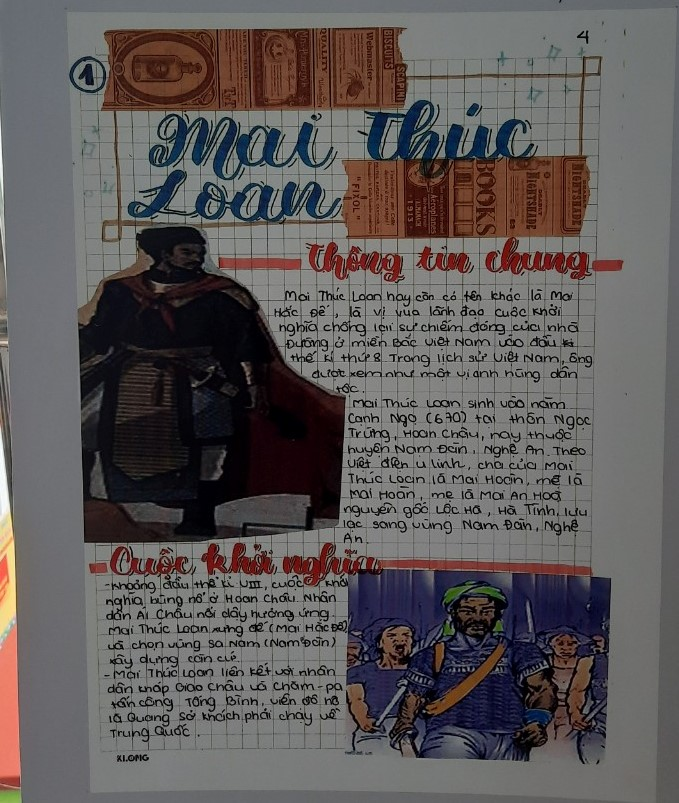 4
1
BISCUITS
SCAPINI
Webmaster
QUALITY
Mai Thúc
Loan
"FIXOL"
1913
BOOKS
NIGHTSHADE
Thông tin chung
Mai Thúc Loan hay còn có tên khác là Mai
Hắc Đế, là vị vua lãnh đạo cuộc khởi
nghĩa chống lại sự chiếm đóng của nhà
Đường ở miền Bắc Việt Nam vào đầu kỉ
thế kỉ thứ 8. Trong lịch sử Việt Nam, ông
được xem như một vị anh hùng dân
tộc.
Mai Thúc Loan sinh vào năm
Canh Ngọ (670) tại thôn Ngọc
Trừng, Hoan Châu, nay thuộc
huyện Nam Đàn, Nghệ An. Theo
Việt điện u linh, cha của Mai
Thúc Loan là Mai Hoàn, mẹ là
Mai Hoàn, mẹ là Mai An Hoà
nguyên gốc Lộc Hà, Hà Tĩnh, lưu
lạc sang vùng Nam Đàn, Nghệ
An.
Cuộc khởi nghĩa
-Khoảng đầu thế kỉ VIII, cuộc khởi
nghĩa bùng nổ ở Hoan Châu. Nhân
dân Ái Châu nổi dậy hưởng ứng.
Mai Thúc Loan xưng đế (Mai Hắc Đế)
và chọn vùng Sa Nam (Nam Đàn)
xây dựng căn cứ.
-Mai Thúc Loan liên kết với nhân
dân khắp Giao Châu và Chăm-pa
tấn công Tống Bình, viên đô hộ
là Quang Sở Khách phải chạy về
Trung Quốc.
KLONG